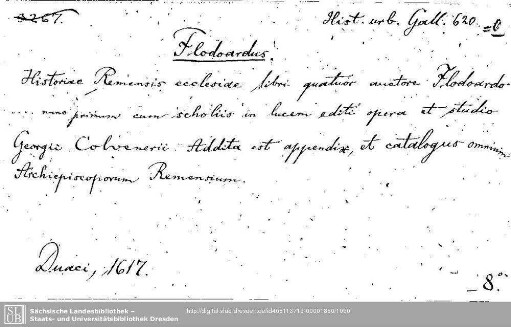 3267.
Hist. urb. Gall. 620.
Flodoardus.
Historiae Remensis ecclesiae libri quatuor auctore Flodoardo
.... nunc primum cum scholiis in lucem editi opera et studio
Georgii Colvenerii. Addita est appendix, et catalogus omnium
Archiepiscoporum Remensium.
Duaci, 1617.
8.°
SLUB
Sächsische Landesbibliothek –
Staats- und Universitätsbibliothek Dresden